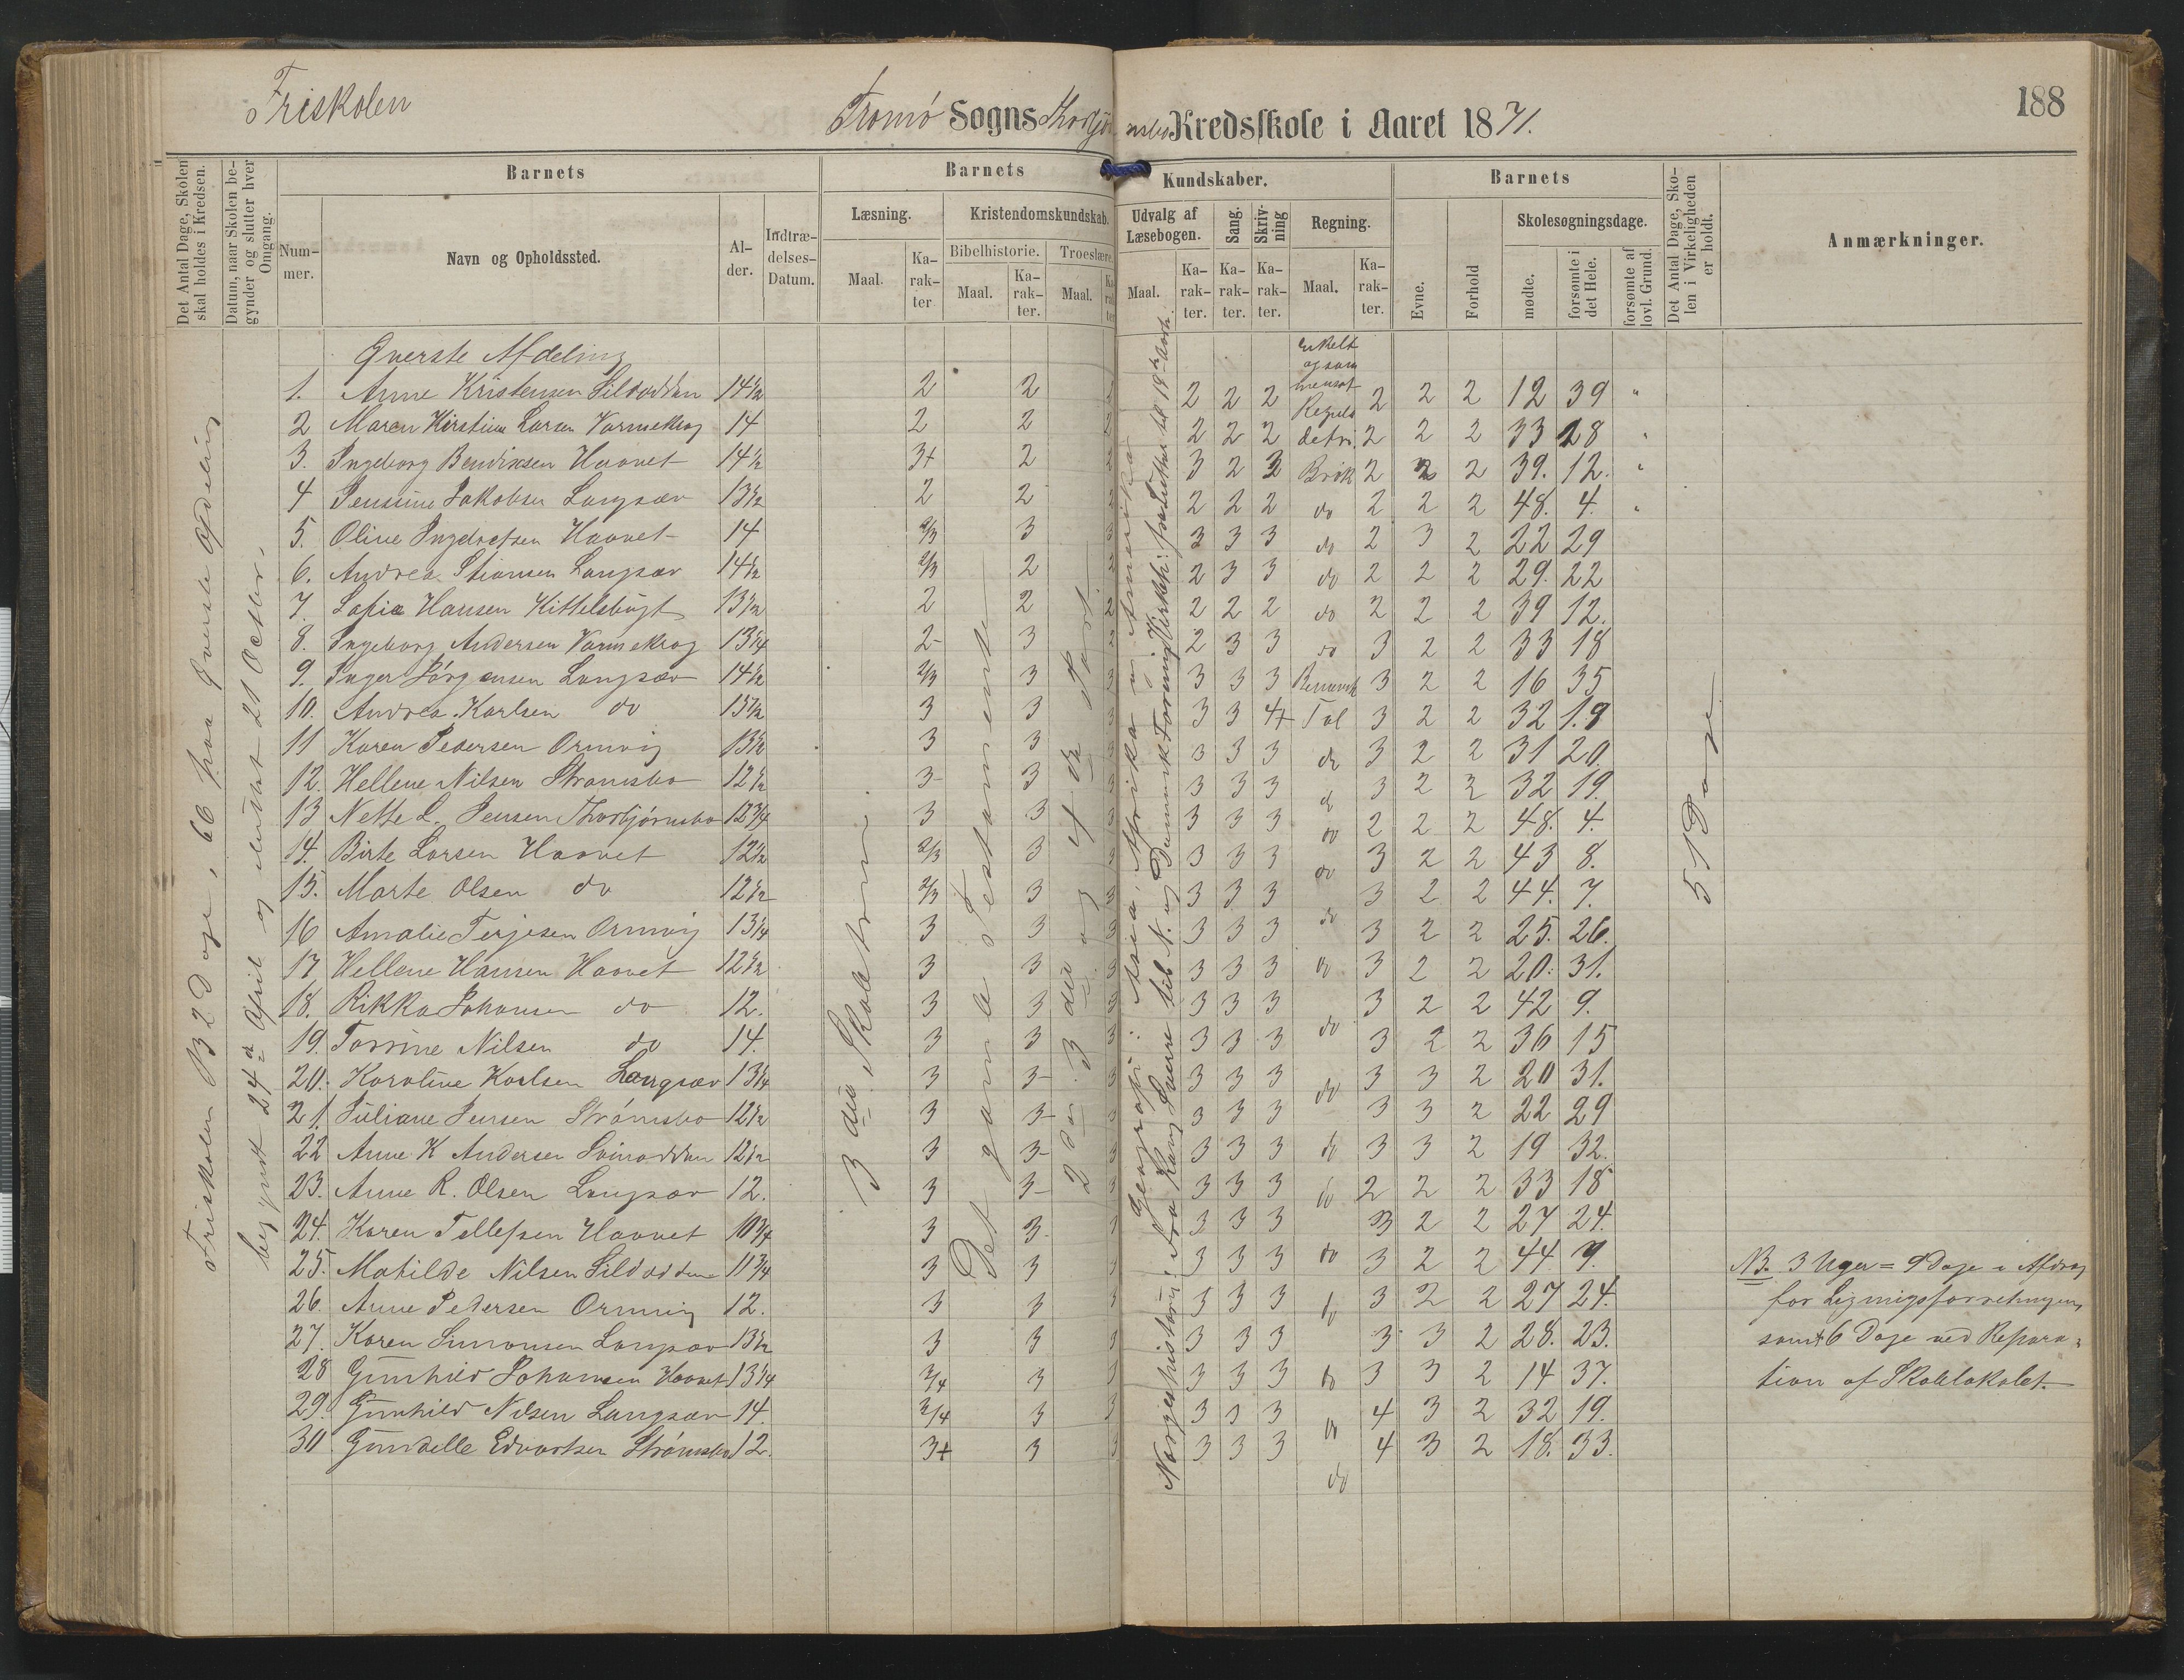 Friskolen
Tromø Sogns Thorbjørnsbo Kredsskole i Aaret 1871.
188
Det Antal Dage, Skolen skal holdes i Kredsen.
Datum, naar Skolen begynder og slutter hver Omgang.
Barnets
Nummer.
Navn og Opholdssted.
Alder.
Indtrædelses-Datum.
Barnets Kundskaber.
Læsning.
Maal.
Karakter
Kristendomskundskab.
Bibelhistorie.
Maal.
Karakter.
Troeslære.
Maal.
Karakter
Udvalg af Læsebogen.
Maal.
Karakter.
Sang.
Karakter.
Skrivning
Karakter.
Regning.
Maal.
Karakter.
Barnets
Evne.
Forhold
Skolesøgningsdage.
mødte.
forsømte i det Hele.
forsømte af lovl. Grund.
Det Antal Dage, Skolen i Virkeligheden er holdt.
Anmærkninger.
Friskolen 132 Dage, 66 paa øverste Afdeling
begyndt 24de April og sluttet 21 Octbr.
3die Skoletrin.
Det gamle Testamente
2den 3die og 4de Part.
Geografi: Asia, Afrika og Amerika
51 Dage
Øverste Afdeling
1. Anne Kristensen Sildodden 14½ 2 2 2 2 2 2 2 2 12 39 "
2 Maren Kirstine Larsen Varmekrog 14 2 2 2 2 2 2 2 2 33 18 "
3. Ingeborg Bendixsen Haavet 14½ 3+ 2 2 3 2 2 Brøk 2 2 2 39. 12. "
4 Jenssine Jakobsen Langsæv 13½ 2 2 2 2 2 2 do 2 2 2 48. 4. "
5. Oline Ingebretsen Haavet 14 2/3 3 3 3 3 3 do 2 3 2 22 29
6. Andrea Stiansen Langsæv 14½ 2/3 2 2 2 3 3 do 2 2 2 29. 22
7. Sofie Hansen Kittelsbugt 13½ 2 2 2 2 2 2 do 2 2 2 39 12.
8. Ingeborg Andersen Varmekrog 13¼ 2- 3 2 2 3 3 do 3 2 2 33 18
9. Inger Jørgensen Langsæv 14½ 2/3 3 3 3 3 3 Benævnt 3 2 2 16 35
10. Andrea Karlsen do 13½ 3 3 3 3 3 4+ Tal 3 2 2 32 19
11 Karen Pedersen Ormvig 13½ 3 3 3 3 3 3 do 3 2 2 31 20.
12. Hellene Nilsen Strømsbo 12½ 3- 3 3 3 3 3 do 3 2 2 32 19.
13 Nette L. Jensen Thorbjørnsbo 12¾ 3 3 3 3 3 3 do 2 2 2 48. 4.
14. Birte Larsen Haavet 12½ 2/3 3 3 3 3 3 do 3 2 2 43 8.
15. Marte Olsen do 12½ 2/3 3 3 3 3 3 3 2 2 44. 7.
16 Amalie Terjesen Ormvig 13¼ 3 3 3 3 3 3 do 3 2 2 25. 26.
17 Hellene Hansen Haavet 12½ 3 3 3 3 3 3 do 3 2 2 20. 31.
18. Rikka Johansen do 12. 3 3 3 3 3 3 3 2 2 42 9.
19. Torrine Nilsen do 14. 3 3 3 3 3 3 do 3 2 2 36 15
20. Karoline Karlsen Langsæv 13¼ 3 3- 3 3 3 3 do 3 3 2 20 31.
21. Juliane Jensen Strømsbo 12½ 3 3- 3 3 3 3 3 3 2 22 29
22 Anne K Andersen Svinodden 12½ 3 3- 3 3 3 3 do 3 3 2 19 32.
23. Anne R. Olsen Langsæv 12. 3 3- 3 3 3 3 do 2 2 2 33 18
24. Karen Tellefsen Haavet 10¾ 3 3. 3 3 3 3 3 2 2 27 24.
25. Matilde Nilsen Sildodden 11¾ 3 3 3 3 3 3 do 3 2 2 44. 7.
26. Anne Petersen Ormvig 12. 3 3 3 3 3 3 do 3 2 2 27 24.
27. Karen Simonsen Langsæv 13½ 3 3 3 3 3 3 3 3 2 28. 23.
28 Gunhild Johansen Haavet 13¼ 3/4 3 3 3 3 3 do 3 3 2 14 37.
29. Gunhild Nilsen Langsæv 14. 3/4 3 3 3 3 3 do 4 3 2 32 19.
30 Gundelle Edvartsen Strømsbo 12. 3+ 3 3 3 3 3 do 4 3 2 18. 33.
NB. 3 Uger = 9 Dage i Afdrag
for Ligningsforretningen,
samt 6 Dage ved Repara-
tion af Skolelokalet.